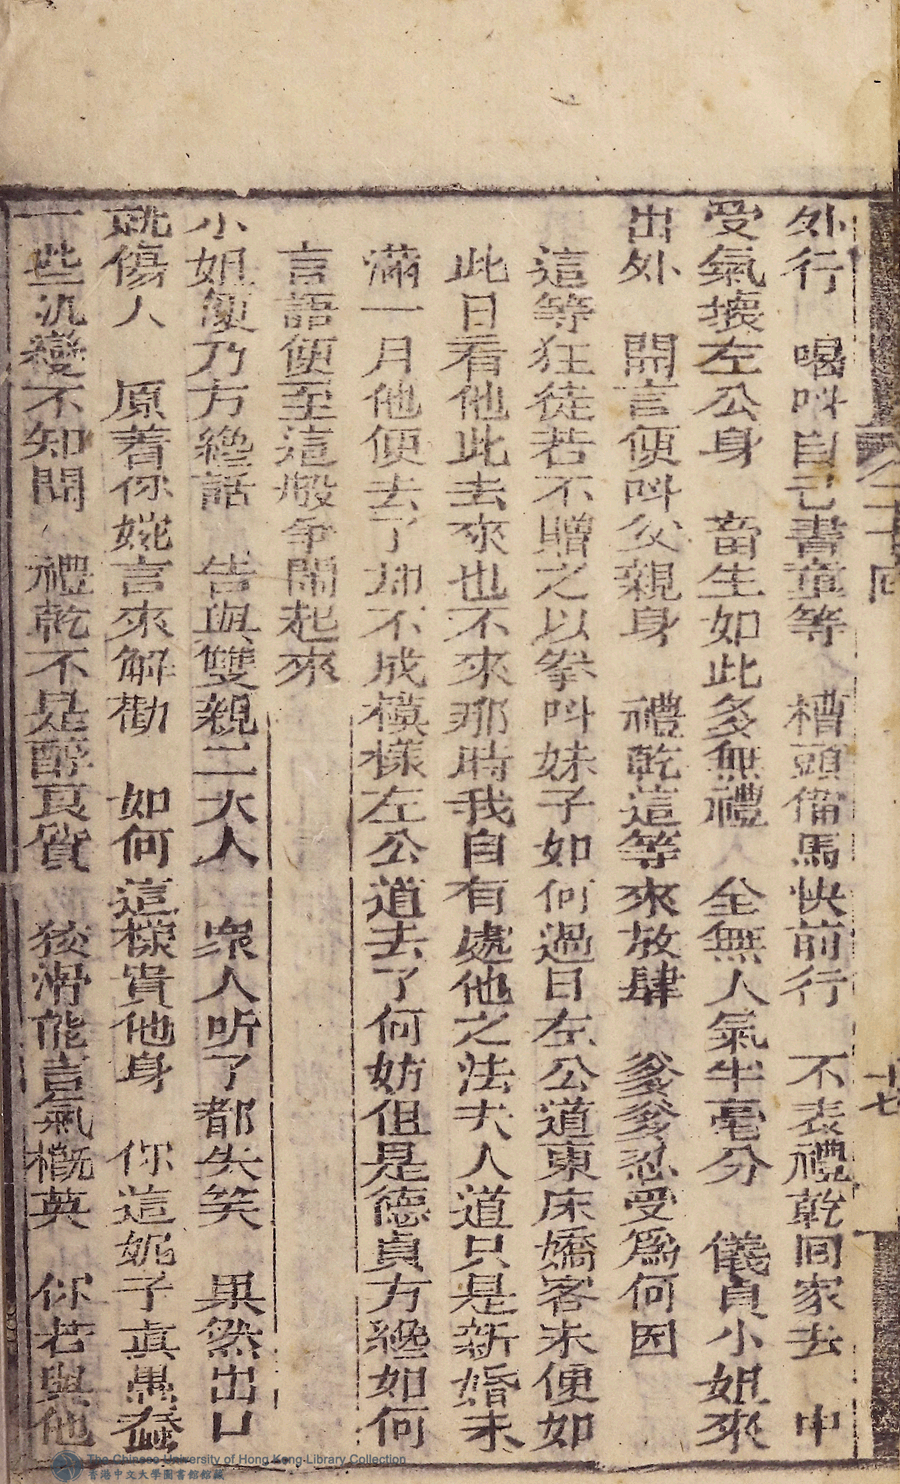 外行　喝呌自己書童等　槽頭俻馬快前行　不表禮乾回家去　中
受氣壞左公身　畜生如此多無禮　全無人氣半毫分　儀貞小姐來
出外　開言便呌父親身　禮乾這等來放肆　爹爹忍受爲何因
這等狂徒若不贈之以拳呌妹子如何過日左公道東床嬌客未便如
此日看他此去來也不來那時我自有處他之法夫人道只是新婚未
滿一月他便去了却不成模樣左公道去了何妨但是德貞方纔如何
言語便至這般争鬧起來
小姐便乃方纔話　告與雙親二大人　衆人听了都失笑　果然出口
就傷人　原着你婉言來解勸　如何這樣貴他身　你這妮子真愚蠢
一些汎變不知聞　禮乾不是醇良質　狡滑能言氣概英　你若與他
十七
The Chinese University of Hong Kong-Library Collection
香港中文大學圖書館館藏